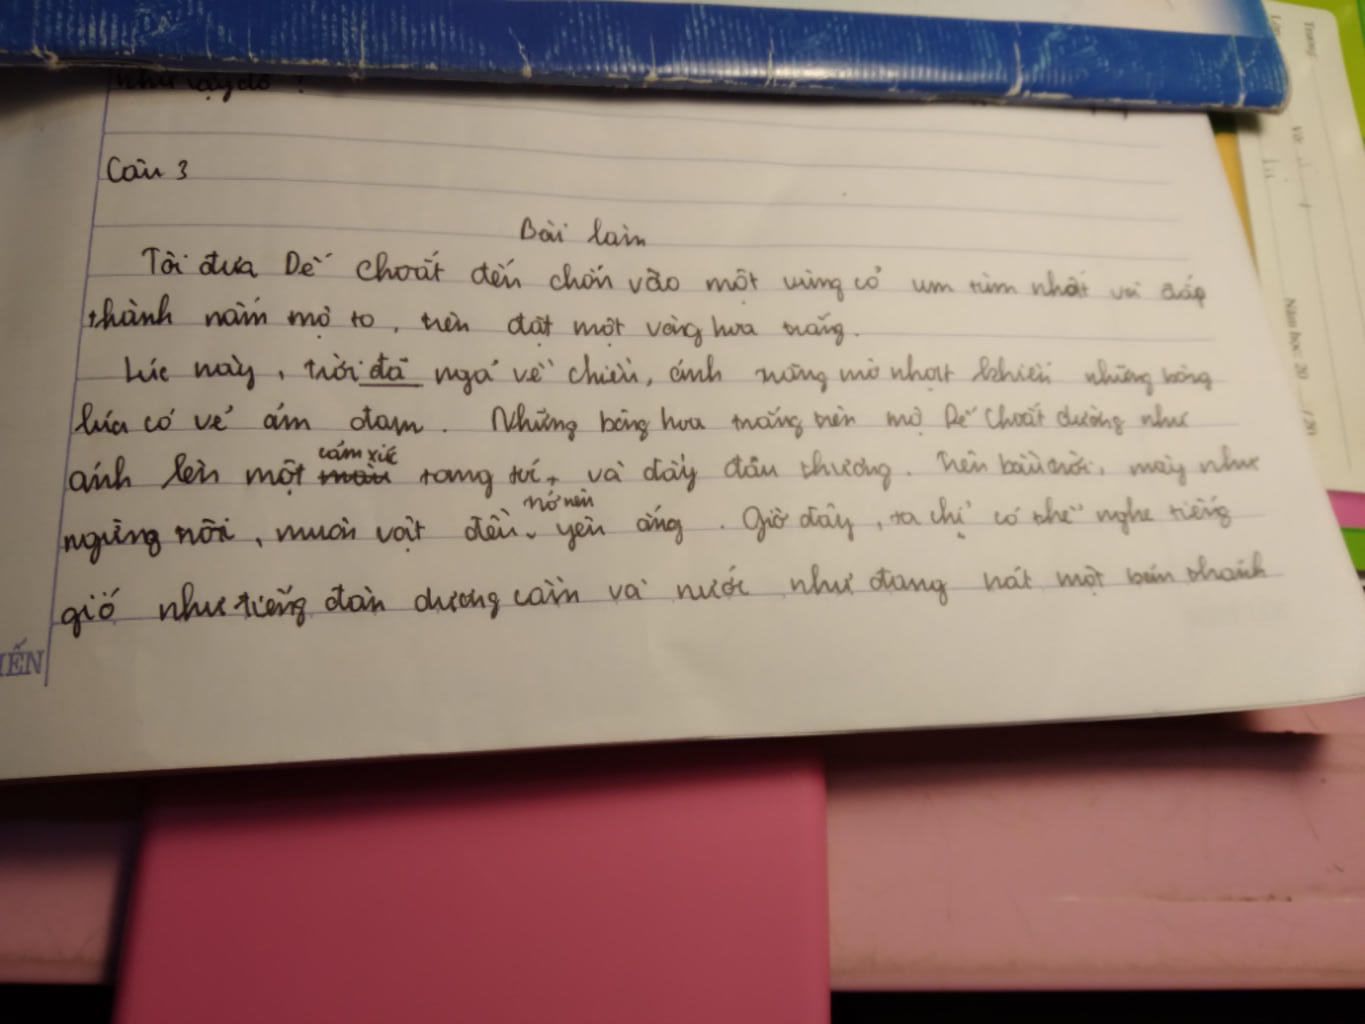 như vậy đó !
Câu 3
Bài làm
Tôi đưa Dế Choắt đến chôn vào một vùng cỏ um tùm nhất và đắp
thành nấm mộ to, trên đặt một vòng hoa trắng.
Lúc này, trời đã ngả về chiều, ánh nắng mờ nhạt khiến những bông
lúa có vẻ ảm đạm. Những bông hoa trắng trên mộ Dế Choắt dường như
ánh lên một cảm xúc tang tóc, và đầy đau thương. Trên bầu trời, mây như
ngừng trôi, muôn vật đều trở nên yên ắng. Giờ đây, ta chỉ có thể nghe tiếng
gió như tiếng đàn dương cầm và nước như đang hát một bản thanh
IẾN
Trường
Lớp
Vở
Năm học: 20 /20